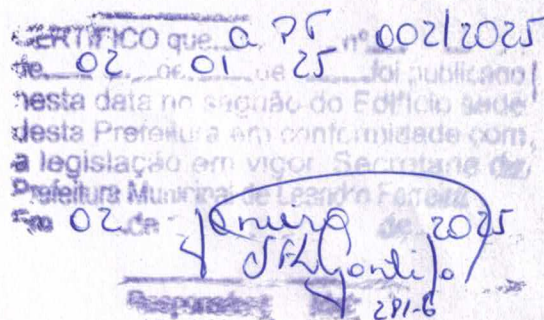 CERTIFICO que a PT nº 002/2025
de 02 de 01 de 25 foi publicano
nesta data no saguão do Edifício sede
desta Prefeitura em conformidade com
a legislação em vigor. Secretaria da
Prefeitura Municipal de Leandro Ferreira
Em 02 de Janeiro de 2025
Responsável
281-6